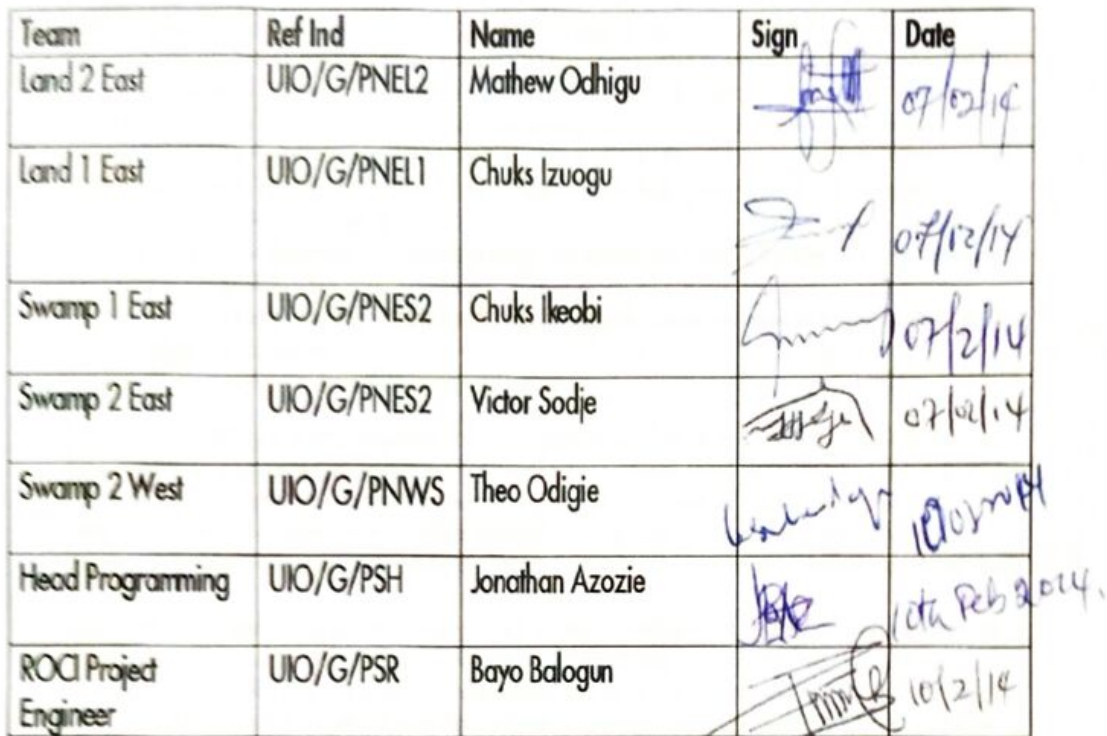 Team Ref Ind Name Sign Date
Land 2 East UIO/G/PNEL2 Mathew Odhigu 07/02/14
Land 1 East UIO/G/PNEL1 Chuks Izuogu 07/12/14
Swamp 1 East UIO/G/PNES2 Chuks Ikeobi 07/2/14
Swamp 2 East UIO/G/PNES2 Victor Sodje 07/02/14
Swamp 2 West UIO/G/PNWS Theo Odigie
Head Programming UIO/G/PSH Jonathan Azozie 10th Feb 2014.
ROCI Project UIO/G/PSR Bayo Balogun 10/2/14
Engineer